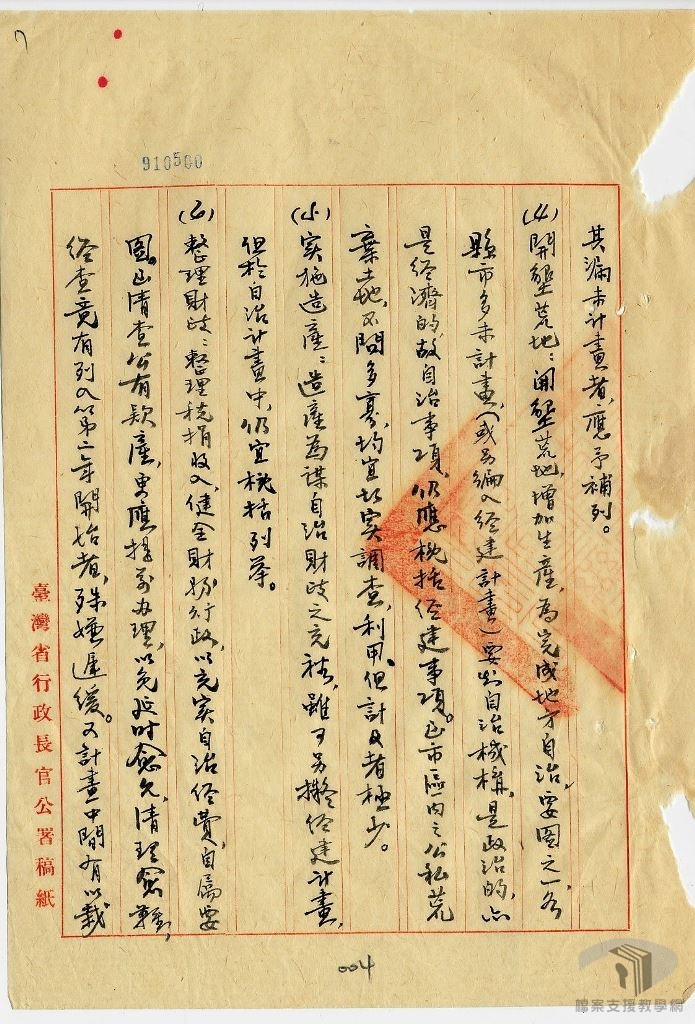 910500
其漏未計畫者,應予補列。
(4)開墾荒地:開墾荒地,增加生產,為完成地方自治,要圖之一,各
縣市多未計畫,(或另編入經建計畫)要知自治機構,是政治的,亦
是經濟的,故自治事項,仍應概括經建事項。且市區內之公私荒
棄土地,不問多寡,均宜切實調查,利用,但計及者極少。
(5)實施造產:造產為謀自治財政之充裕,雖可另擬經建計畫,
但於自治計畫中,仍宜概括列舉。
(6)整理財政:整理稅捐收入,健全財務行政,以充實自治經費,自屬要
圖,至清查公有款產,更應提前办理,以免延时愈久,清理愈難,
經查竟有列入第二年開始者,殊嫌遲緩。又計畫中間有以裁
臺灣省行政長官公署稿紙
004
檔案支援教學網